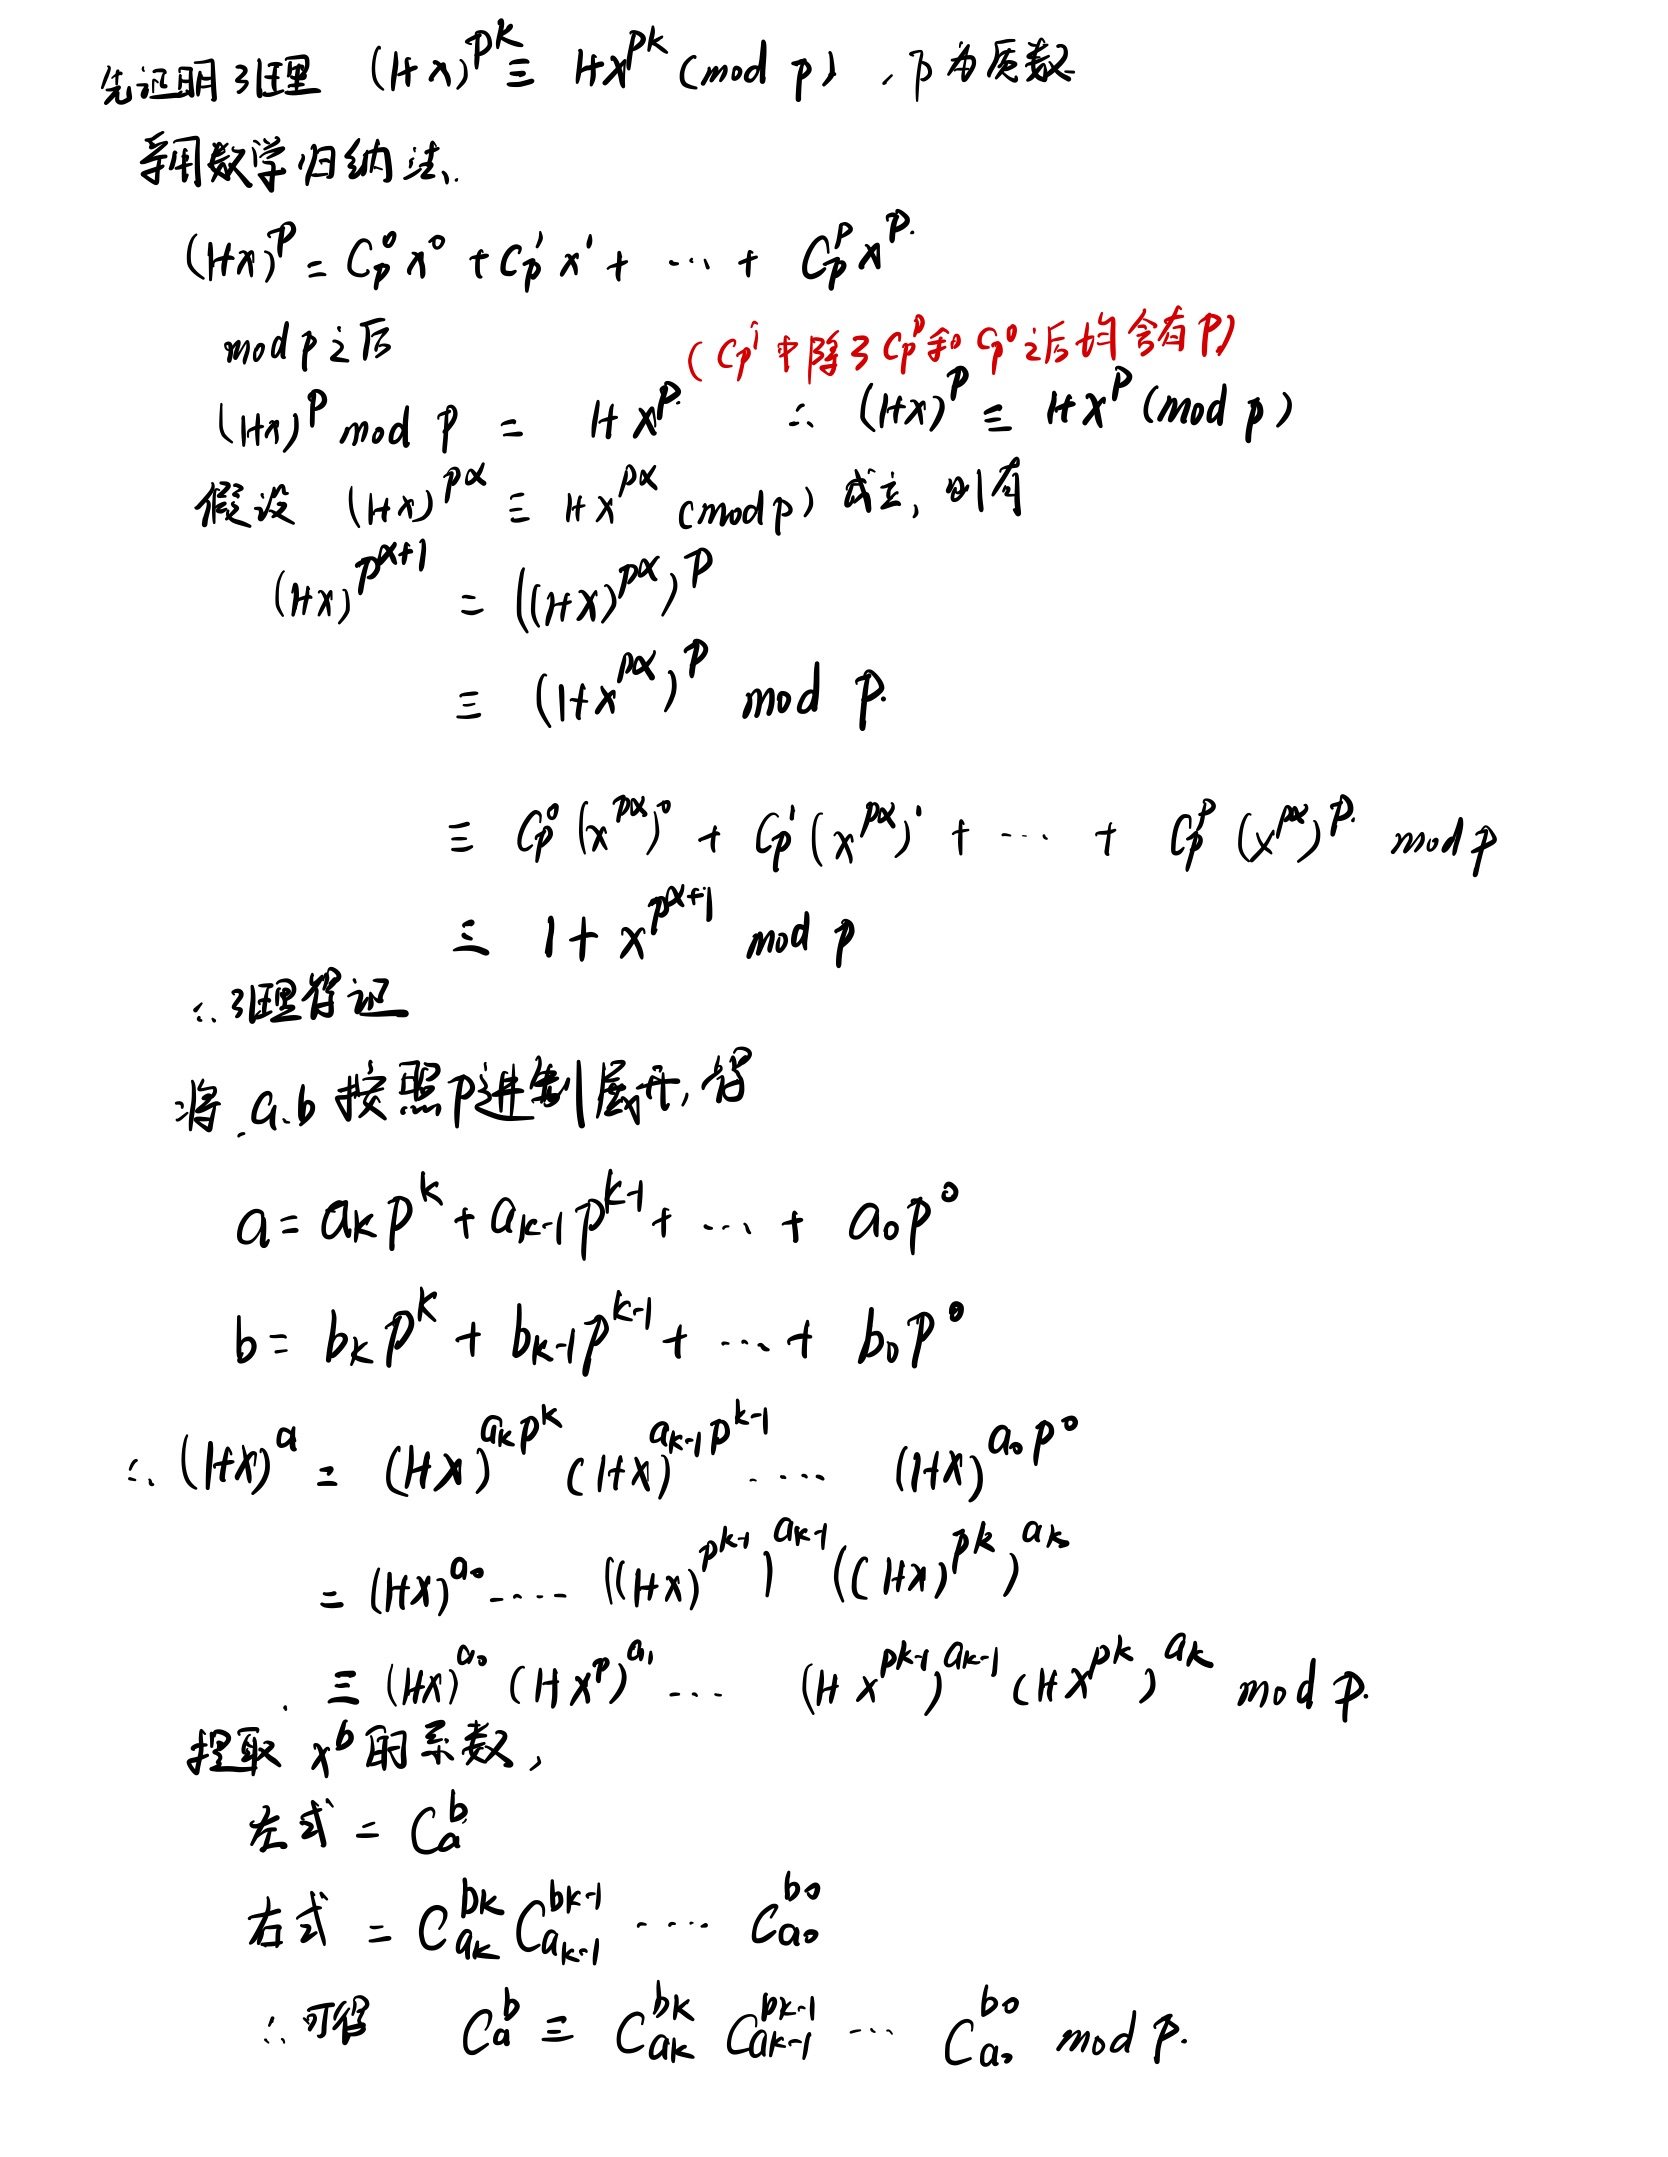 先证明引理 (1+x)^{p^k} ≡ 1+x^{p^k} (mod p)，p为质数
采用数学归纳法、
(1+x)^p = C_p^0 x^0 + C_p^1 x^1 + … + C_p^p x^p.
mod p 之后
(C_p^i 中除了 C_p^p 和 C_p^0 之后均含有 p)
(1+x)^p mod p = 1+x^p. ∴ (1+x)^p ≡ 1+x^p (mod p)
假设 (1+x)^{p^α} ≡ 1+x^{p^α} (mod p) 成立，则有
(1+x)^{p^{α+1}} = ((1+x)^{p^α})^p
≡ (1+x^{p^α})^p mod p.
≡ C_p^0 (x^{p^α})^0 + C_p^1 (x^{p^α})^1 + … + C_p^p (x^{p^α})^p. mod p
≡ 1+x^{p^{α+1}} mod p
∴ 引理得证
将 a.b 按照p进制展开，得
a = a_k p^k + a_{k-1} p^{k-1} + … + a_0 p^0
b = b_k p^k + b_{k-1} p^{k-1} + … + b_0 p^0
∴ (1+x)^a = (1+x)^{a_k p^k} (1+x)^{a_{k-1} p^{k-1}} … (1+x)^{a_0 p^0}
= (1+x)^{a_0} … ((1+x)^{p^{k-1}})^{a_{k-1}} ((1+x)^{p^k})^{a_k}
≡ (1+x)^{a_0} (1+x^p)^{a_1} … (1+x^{p^{k-1}})^{a_{k-1}} (1+x^{p^k})^{a_k} mod p.
提取 x^b 的系数，
左式 = C_a^b
右式 = C_{a_k}^{b_k} C_{a_{k-1}}^{b_{k-1}} … C_{a_0}^{b_0}
∴ 可得 C_a^b ≡ C_{a_k}^{b_k} C_{a_{k-1}}^{b_{k-1}} … C_{a_0}^{b_0} mod p.